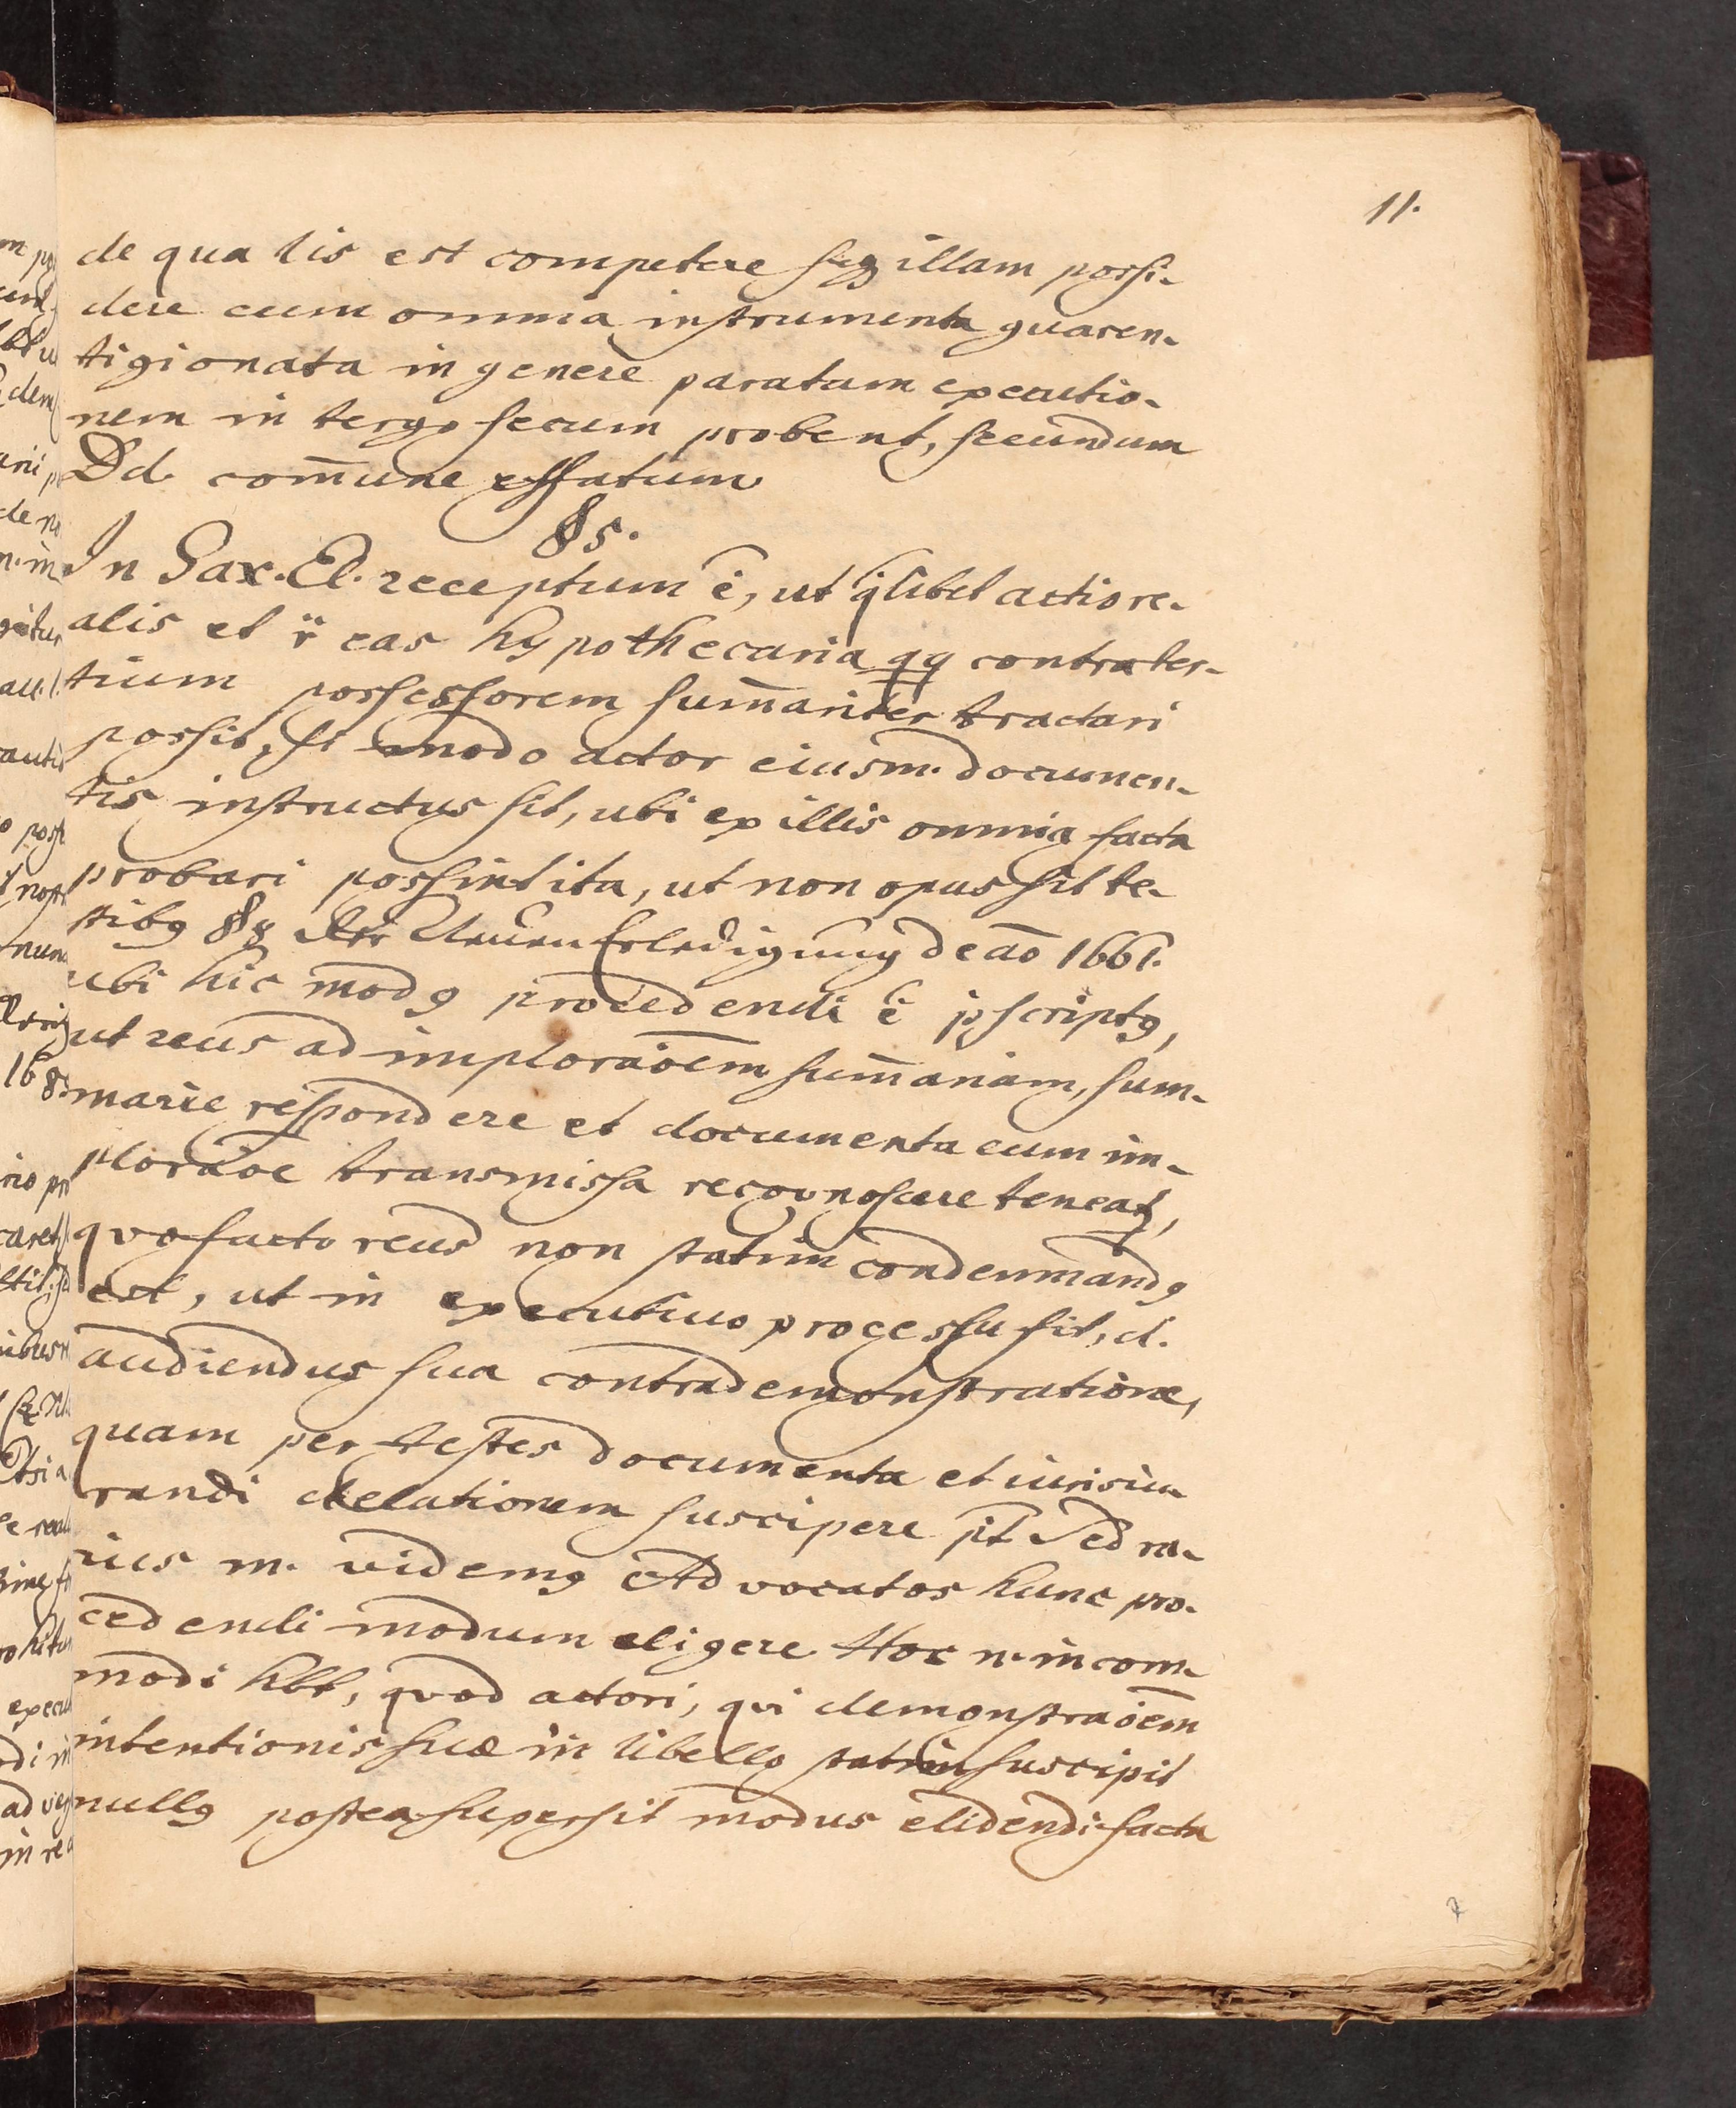 11.
de qua lis est competere seq illam possi-
dere cum omnia instrumenta guaren-
tigionata in genere paratam executio-
nem in tergo secum probent, secundum
Dd. com̄une effatum
§ 5.
In Sax. El. receptum ē, ut qlibet actio re-
alis et r̈ eas hypothecaria qq contra ter-
tium possessorem sum̄ariter tractari
possit, si modo actor eiusm. documen-
tis instructus sit, ubi ex illis omnia facta
probari possint ita, ut non opus sit te-
stibq § 8 der Neuen Erledigung de aō 1661.
ubi hic modq procedendi ē p̄scriptq,
ut reus ad imploraōem sum̄ariam, sum-
marie respondere et documenta cum im-
ploraōe transmissa recognoscere teneat,
quo facto reus non statim condemnandq
est, ut in executivo processu fit, d.
audiendus sua contrademonstratione,
quam per testes documenta et iurisiu-
randi delationem suscipere p̄t Sed ra-
rius m. videmq Advocatos hunc pro-
cedendi modum eligere Hoc n. incom-
modi hbt, quod actori, qui demonstraōem
intentionis suæ in libello statim suscipit
nullq postea supersit modus elidendi facta